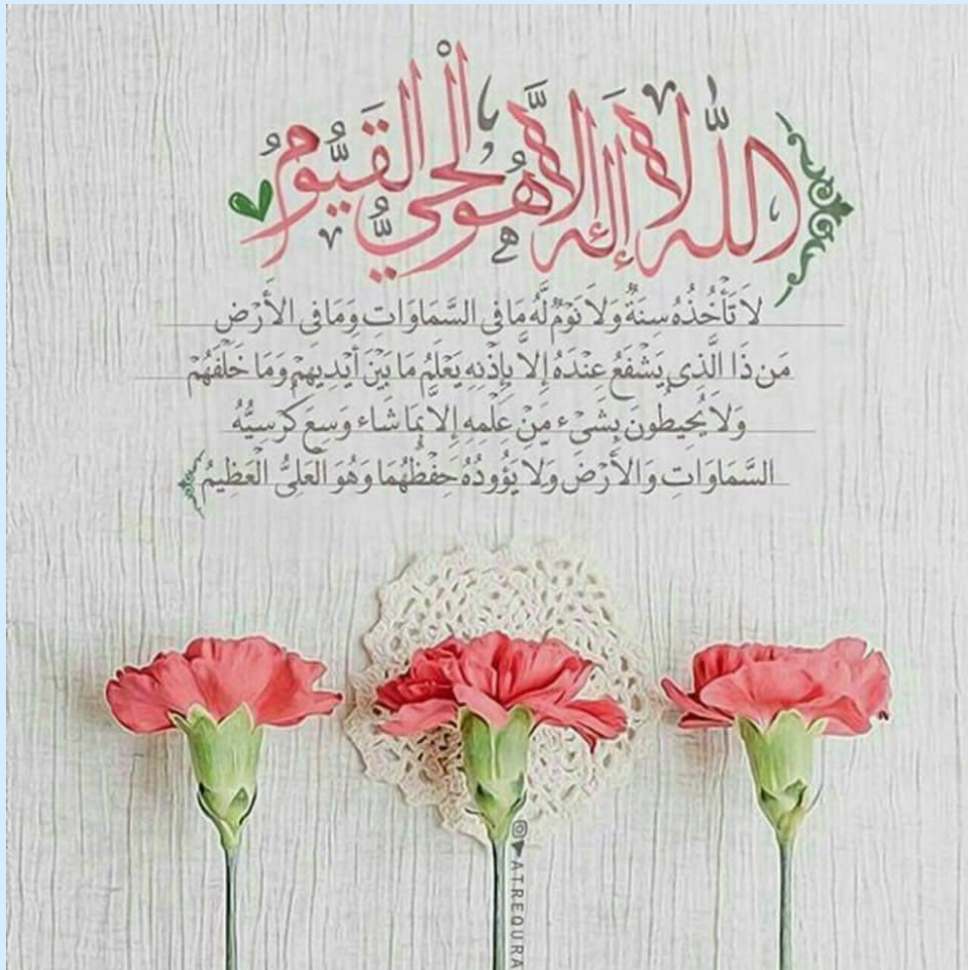 اللَّهُ لَا إِلَٰهَ إِلَّا هُوَ الْحَيُّ الْقَيُّومُ
لَا تَأْخُذُهُ سِنَةٌ وَلَا نَوْمٌ لَّهُ مَا فِي السَّمَاوَاتِ وَمَا فِي الْأَرْضِ
مَن ذَا الَّذِي يَشْفَعُ عِنْدَهُ إِلَّا بِإِذْنِهِ يَعْلَمُ مَا بَيْنَ أَيْدِيهِمْ وَمَا خَلْفَهُمْ
وَلَا يُحِيطُونَ بِشَيْءٍ مِّنْ عِلْمِهِ إِلَّا بِمَا شَاء وَسِعَ كُرْسِيُّهُ
السَّمَاوَاتِ وَالْأَرْضَ وَلَا يَؤُودُهُ حِفْظُهُمَا وَهُوَ الْعَلِيُّ الْعَظِيمُ
ATREQURA